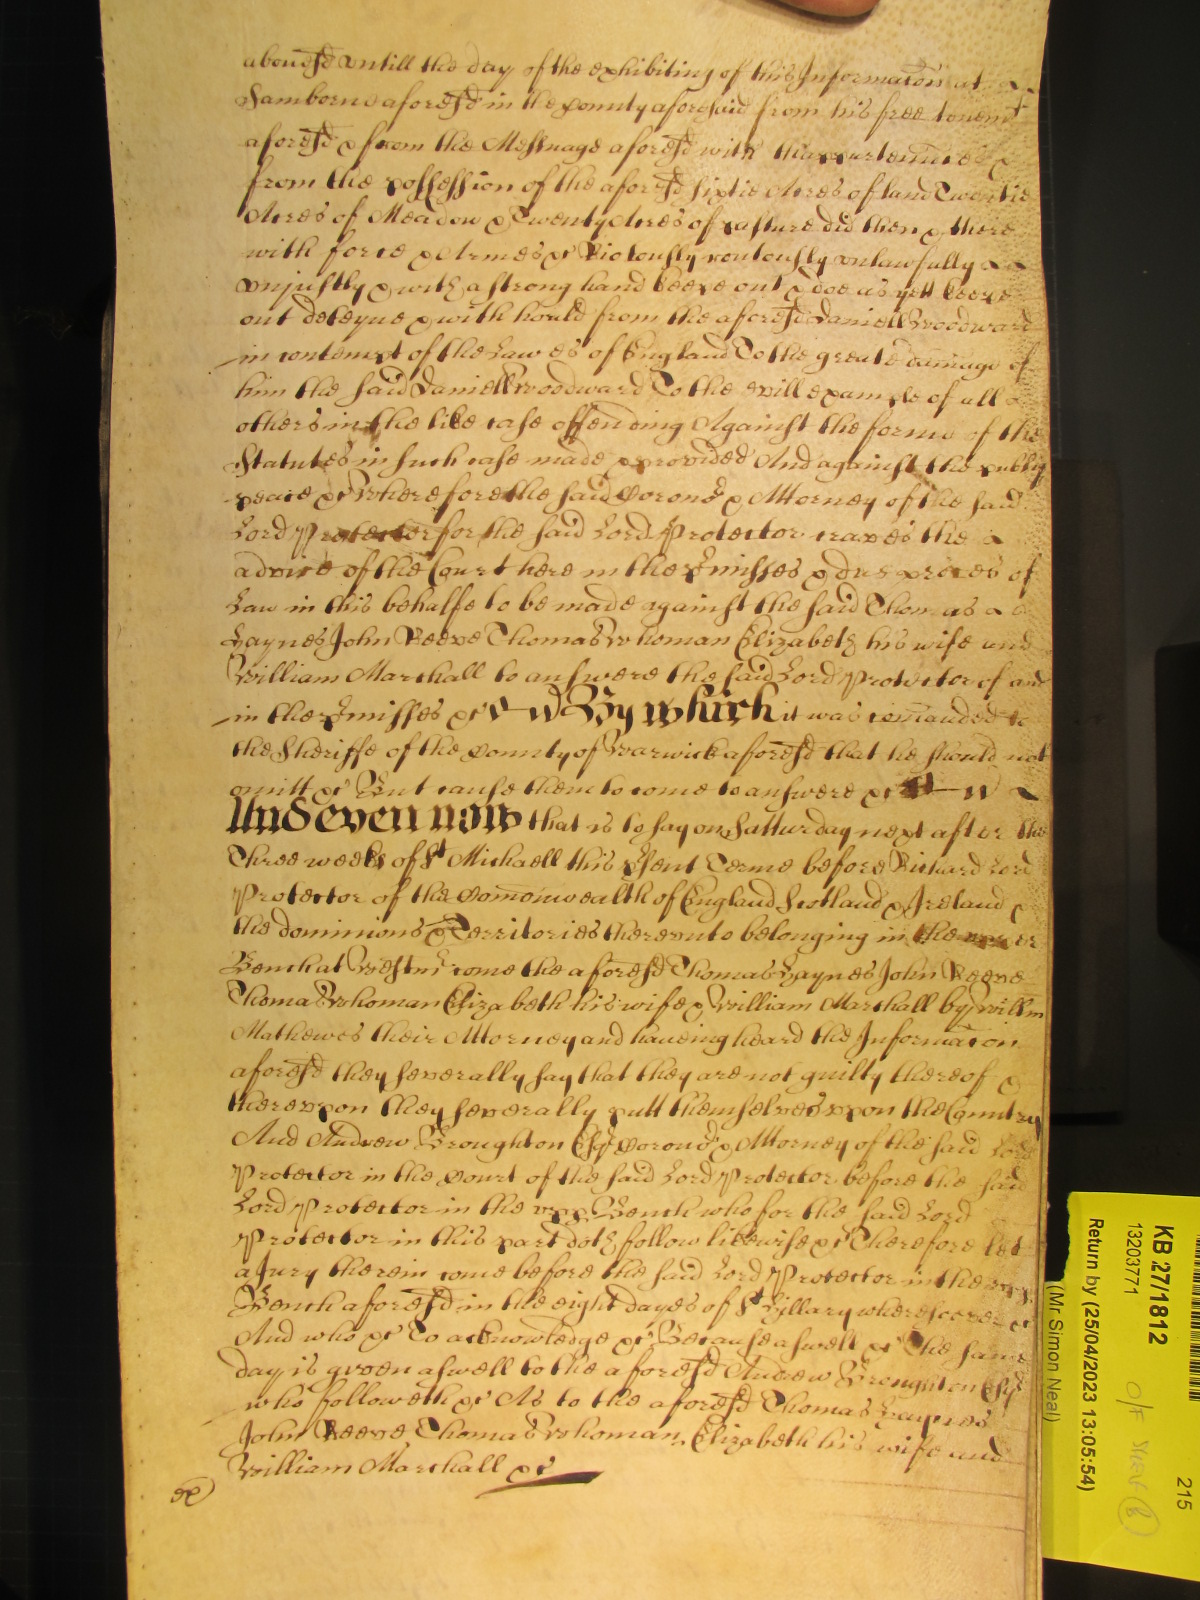 abovesd untill the day of the exhibiting of this Informacon at
Samborne aforesd in the County aforesaid from his free tenemt
aforesd & from the Messuage aforesd with thappurtennces &
from the possession of the aforesd sixtie Acres of land Twentie
Acres of Meadow & Twenty Acres of pasture did then & there
with force & Armes &c Riotously routously unlawfully
unjustly & with a strong hand keepe out & doe as yett keepe
out deteyne & with hould from the aforesd Daniell Woodward
in contempt of the Lawes of England To the greate damage of
him the said Daniell Woodward To the evill example of all
others in the like case offending Against the forme of the
Statutes in such case made & provided And against the publiq
peace &c Wherefore the said Corono & Attorney of the said
Lord Protector for the said Lord Protector craves the
advice of the Court here in the Pmisses & due proces of
Law in this behalfe to be made against the said Thomas
Haynes John Reeve Thomas Whoman Elizabeth his wife and
William Marshall to answere the said Lord Protector of and
in the Pmisses &c By which it was comanded to
the Sheriffe of the County of Warwick aforesd that he should not
omitt &c But cause them to come to answere &c
And even now that is to say on Satturday next after the
Three weeks of St Michaell this Psent Terme before Richard Lord
Protector of the Comonwealth of England Scotland & Ireland &
the dominions & Territories thereunto belonging in the upper
Bench at Westmr come the aforesd Thomas Haynes John Reeve
Thomas Whoman Elizabeth his wife & William Marshall by Willm
Mathewes their Attorney and haveing heard the Informacon
aforesd they severally say that they are not guilty thereof &
thereupon they severally putt themselves upon the Countrey
And Andrew Broughton Esqr Corono & Attorney of the said Lord
Protector in the Court of the said Lord Protector before the said
Lord Protector in the upp Bench who for the said Lord
Protector in this part doth follow likewise &c Therefore let
a Jury therein come before the said Lord Protector in the upp
Bench aforesd in the eight dayes of St Hillary wheresoever &c
And who &c To acknowledge &c Because aswell &c The same
day is given aswell to the aforesd Andrew Broughton Esqr
who followeth &c As to the aforesd Thomas Haynes
John Reeve Thomas Whoman Elizabeth his wife and
William Marshall &c
KB 27/1812
13203771
Return by (25/04/2023 13:05:54)
(Mr Simon Neal)
215
O/F